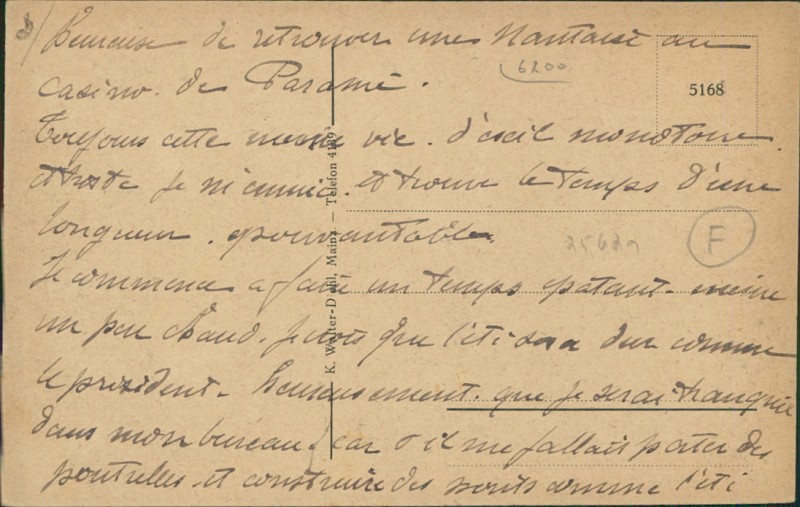 3/ Heureuse de retrouver une Nantaise au
casino de Paramé.
6200
5168
Toujours cette meme vie. d'exil monotone
et triste je m'ennuie. et trouve le temps d'une
longueur. epouvantable.
25629
F
Je commence a faire un temps epatant. meme
un peu chaud. je crois que l'été sera dur comme
le président. heureusement. que je serai tranquille
dans mon bureau car s'il me fallait porter des
poutrelles. et construire des ponts comme l'été
K. Walter-Diehl, Mainz — Telefon 4139